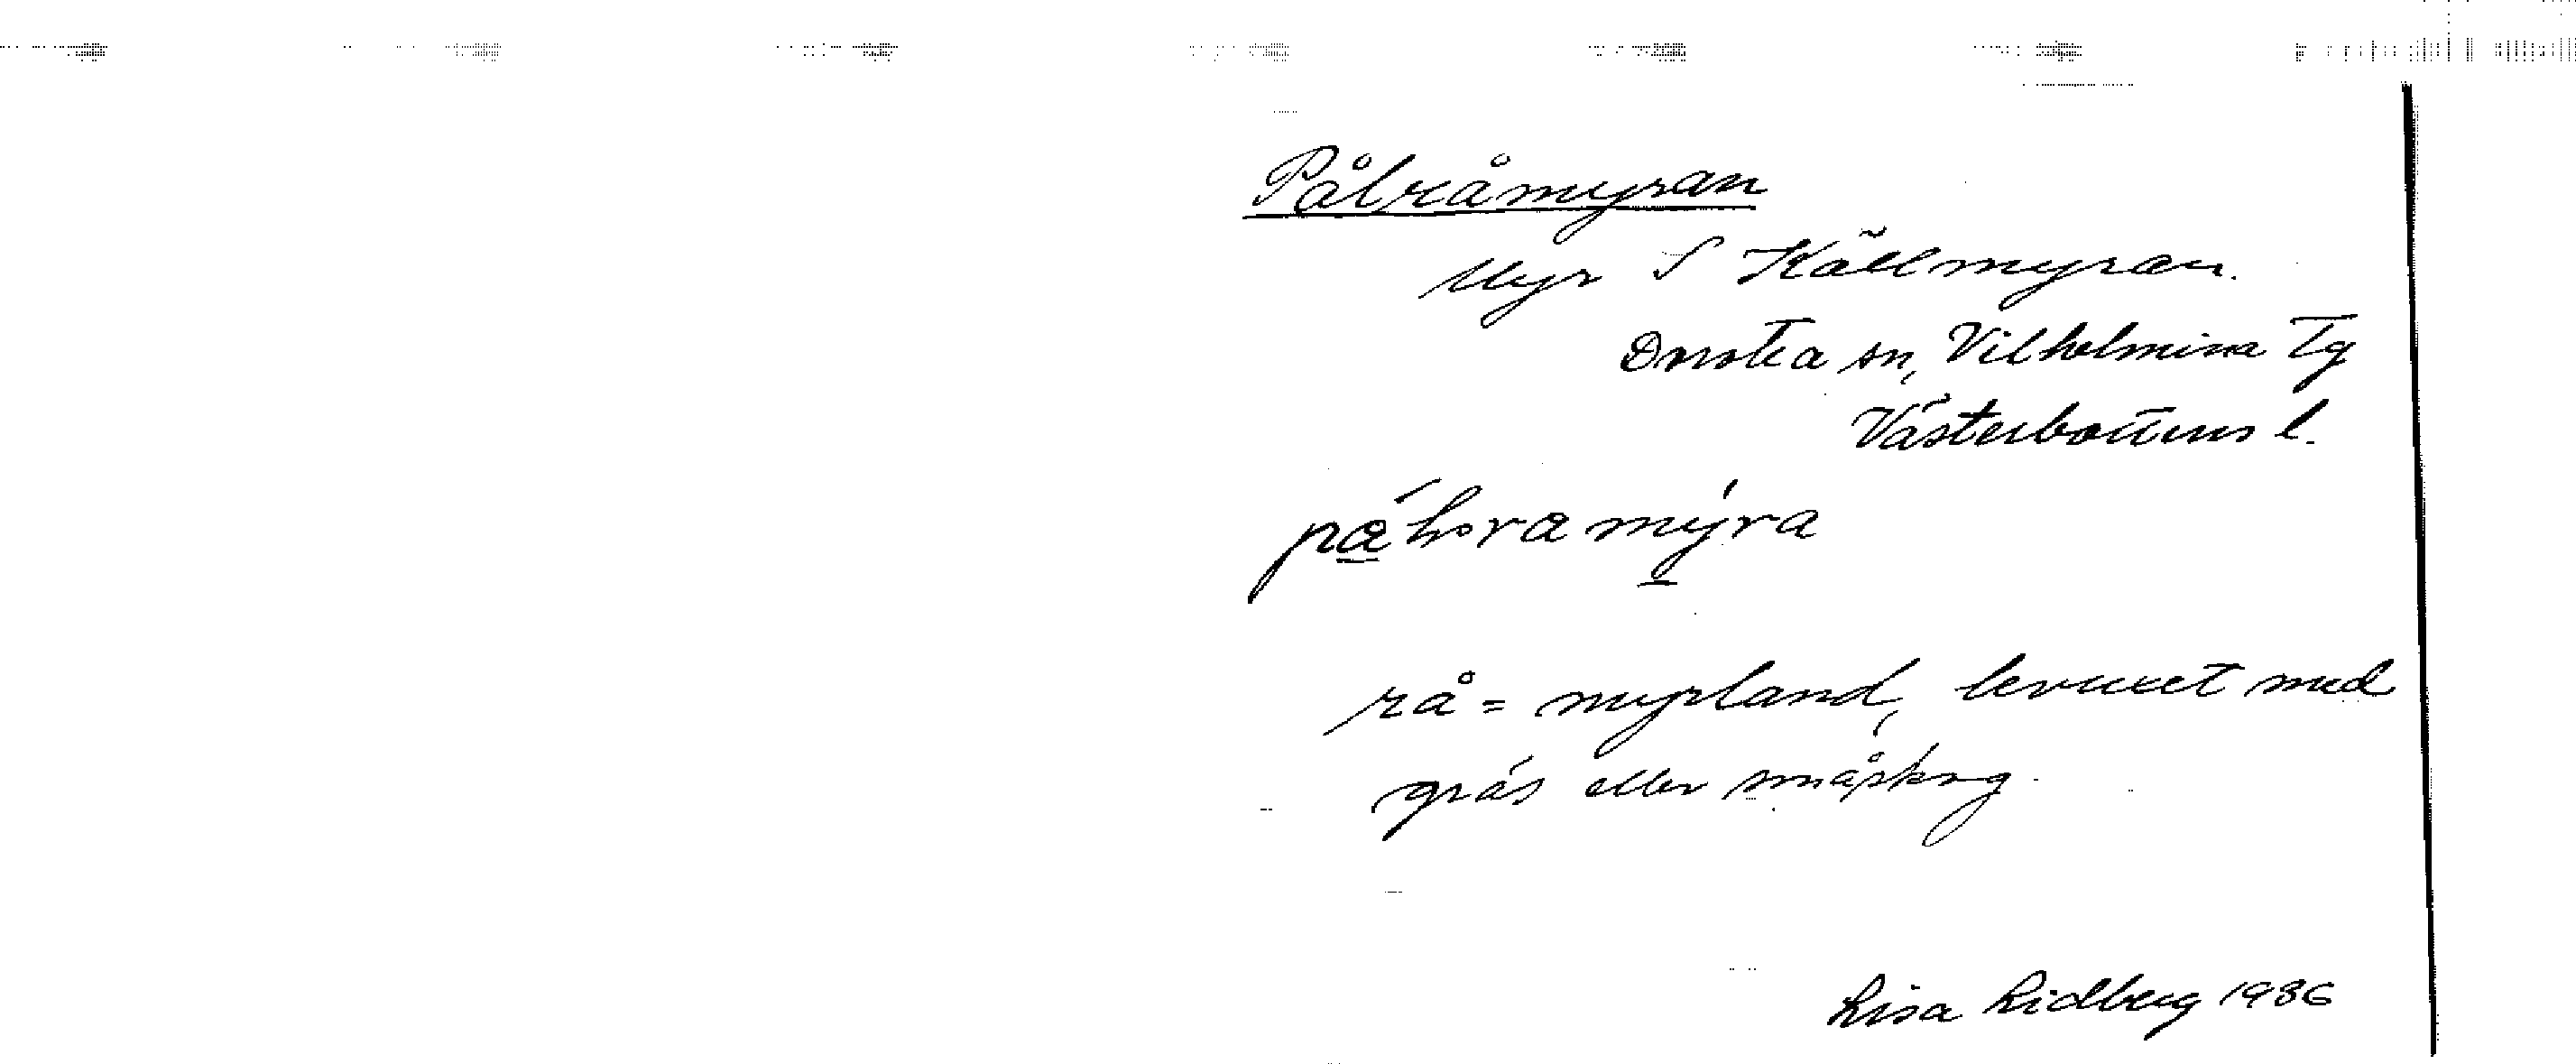 Pålråmyran
Myr S Källmyran.
Dorotea sn, Vilhelmina Tg
Västerbottens l.
rå = myrland, bevuxet med
gräs eller småskog.
Lisa Lidberg 1936